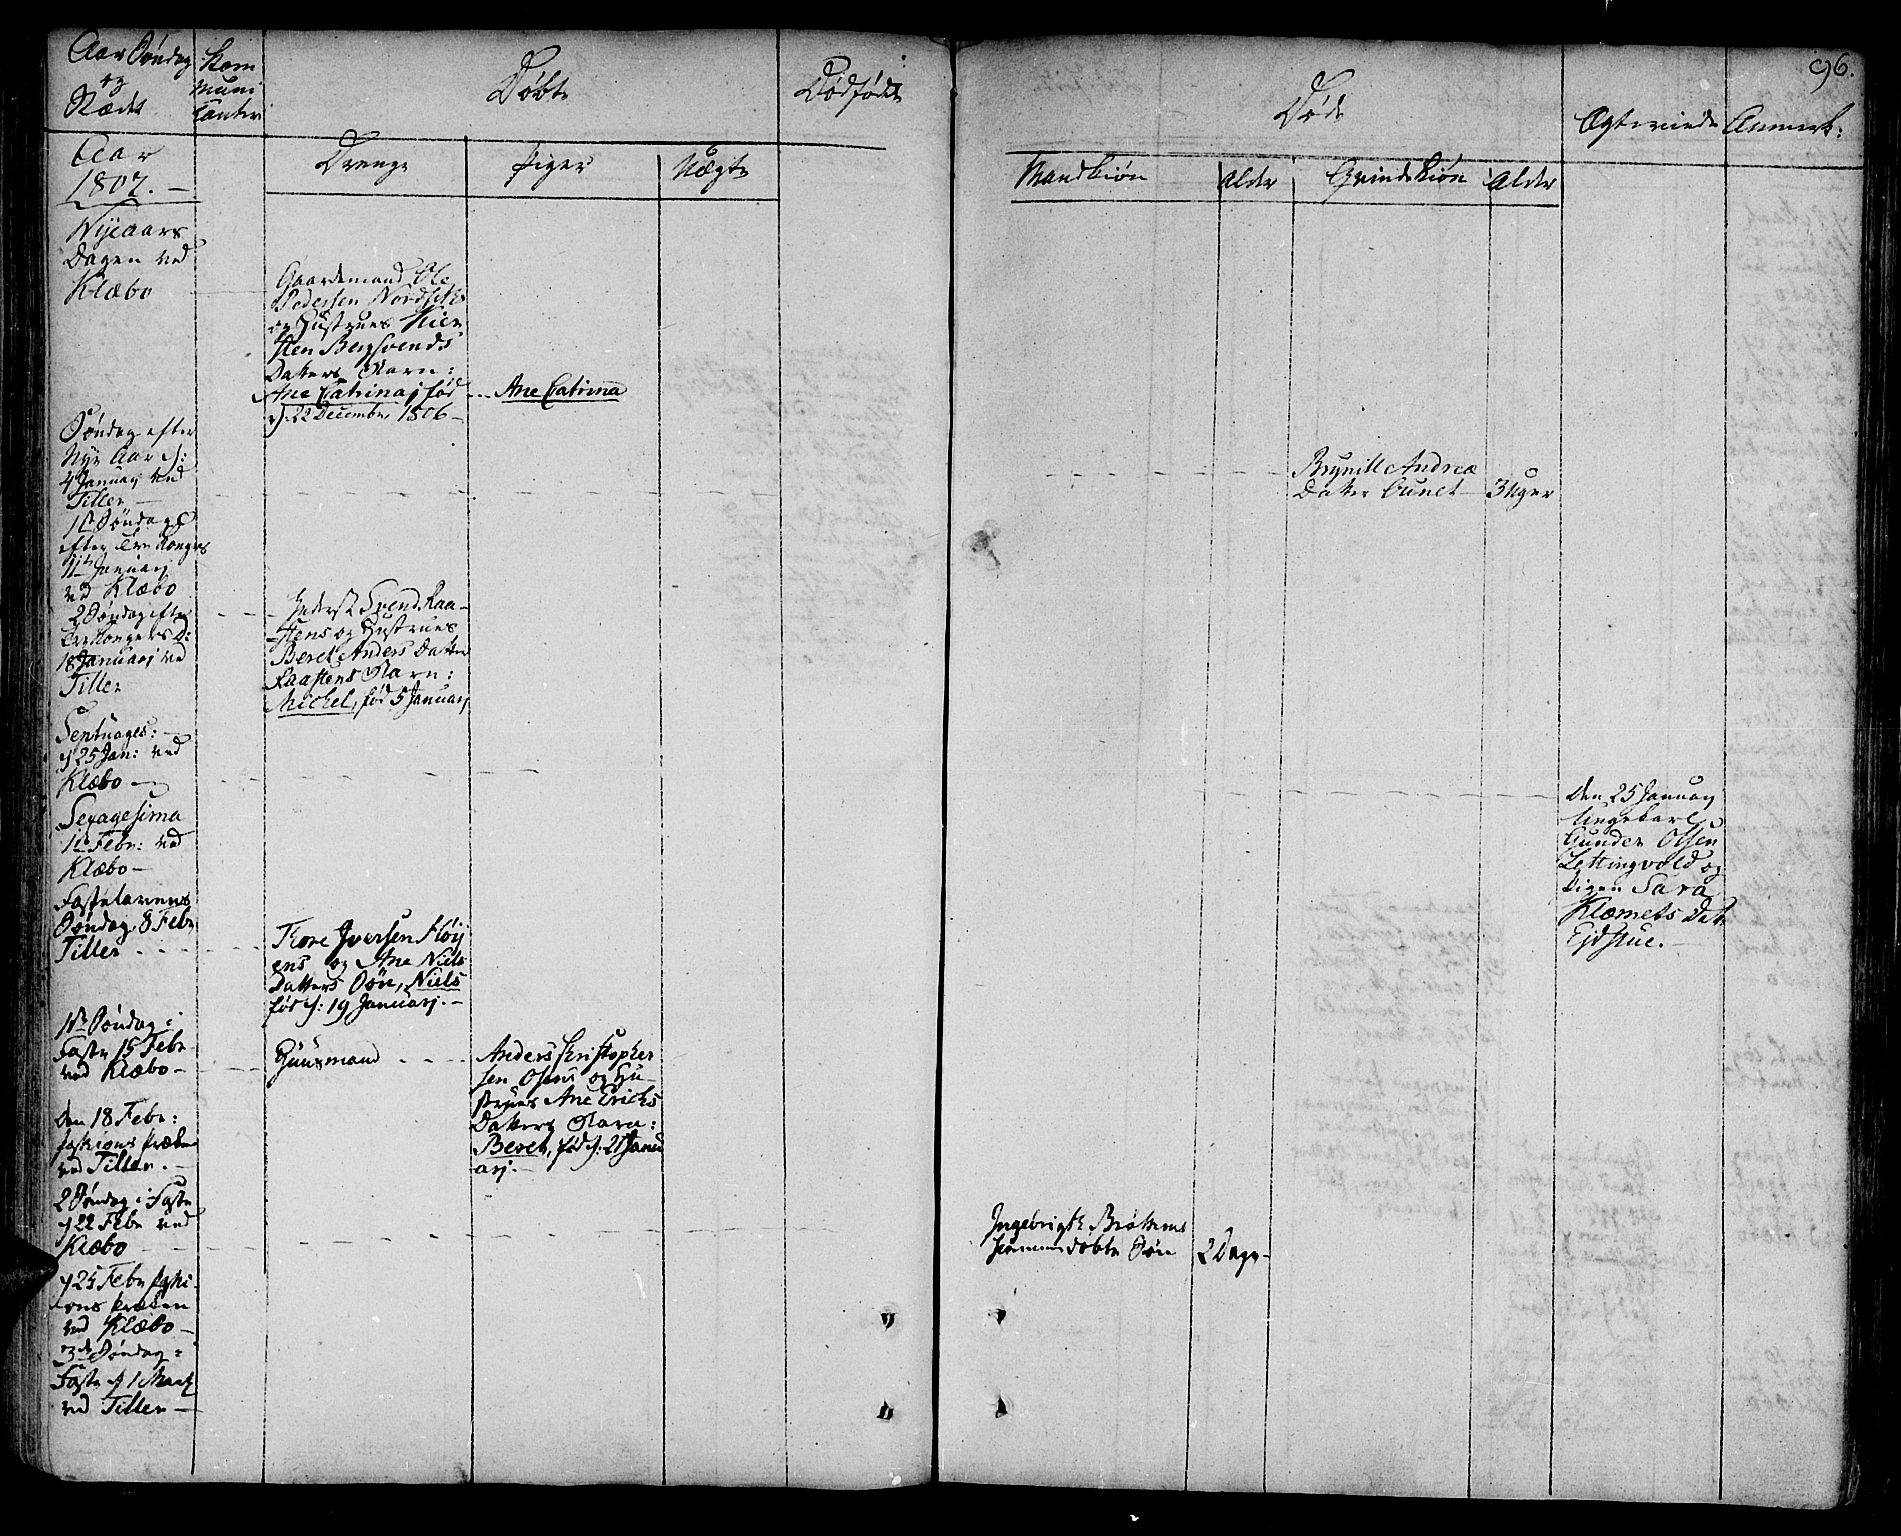 Aar Søndag
og
Stædet
Kom
muni
canter
Døbte
Dødfødte
Døde
Ægteviede
Anmerk:
96.
Aar
1807. —
Drenge
Piger
Uægte
Mandkiøn
Alder
Qvindekiøn
Alder
Nÿeaars
Dagen ved
Klæbo
Gaardmand Ole
Pedersen Nordsets
og Hustrues Kier
sten Bersvends
Datters Barn:
Ane Catrina, fød
d 22 December 1806 —
Ane Catrina
Søndag efter
Nye Aar d:
4 Januarj ved
Tiller —
Datter Eunet
3 Uger
1ste Søndag
efter Tre Konger
11te Januarj
ved Klæbo
2 Søndag efter
Tre Kongers D:
18 Januarj ved
Tiller
Inderst Svend Raa-
stens og Hustrues
Beret Anders Datter
Raastens Barn:
Michel, fød 5 Januarj
Septuages: —
d 25 Jan: ved
Klæbo —
Den 25 Januarj
Ungekarl
Gunder Olsen
Lettingvold og
Pigen Sara
Klemets Dat:
Ejdstue. —
Sexagesima
1te Febr: ved
Klæbo —
Fastelavens
Søndag 8 Febr
Tiller
Tore Iversen Fløtt
ens og Ane Niels
Datters Søn, Niels
fød d: 19 Januarj. —
1ste Søndag i
Faste 15 Febr
ved Klæbo —
Huusmand
Anders Christopher
sen Osens og Hu-
strues Ane Erichs
Datters Barn:
Beret, fød d: 21 Janu
arj. —
Den 18 Febr:
ved Tiller. —
2 Søndag i Faste
d 22 Febr ved
Klæbo
Ingebrigt Brøttems
hiemmedøbte Søn
2 Dage
d 25 Febr
ved Klæbo —
3de Søndag i
Faste d 1 Martj
ved Tiller —